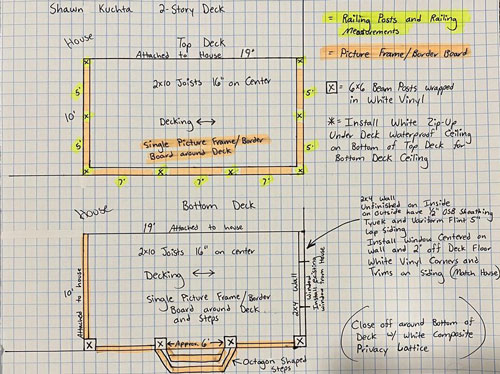 Shawn Kuchta 2-Story Deck
House
Top Deck
Attached to House 19'
5'
10'
5'
5'
5'
2x10 Joists 16" on Center
Decking
Single Picture Frame/Border
Board around Deck
7'
7'
7'
= Railing Posts and Railing
Measurements
= Picture Frame/Border Board
X = 6x6 Beam Posts wrapped
in White Vinyl
* = Install White Zip-Up
Under Deck Waterproof Ceiling
on Bottom of Top Deck for
Bottom Deck Ceiling
House
Bottom Deck
19' Attached to house
10'
Attached to house
2x10 Joists 16" on center
Decking
Single Picture Frame/Border
Board around Deck
and Steps
Approx. 6'
X
X
X
X
Octagon Shaped
Steps
2x4 Wall
Window
Install existing
window from House
2x4 Wall
Unfinished on Inside
on Outside have 1/2" OSB Sheathing
Tyvek and Variform Flint 5"
Lap Siding
Install Window Centered on
wall and 2' off Deck Floor
White Vinyl Corners and
Trims on Siding (Match House)
Close off around Bottom of
Deck w/ White Composite
Privacy Lattice